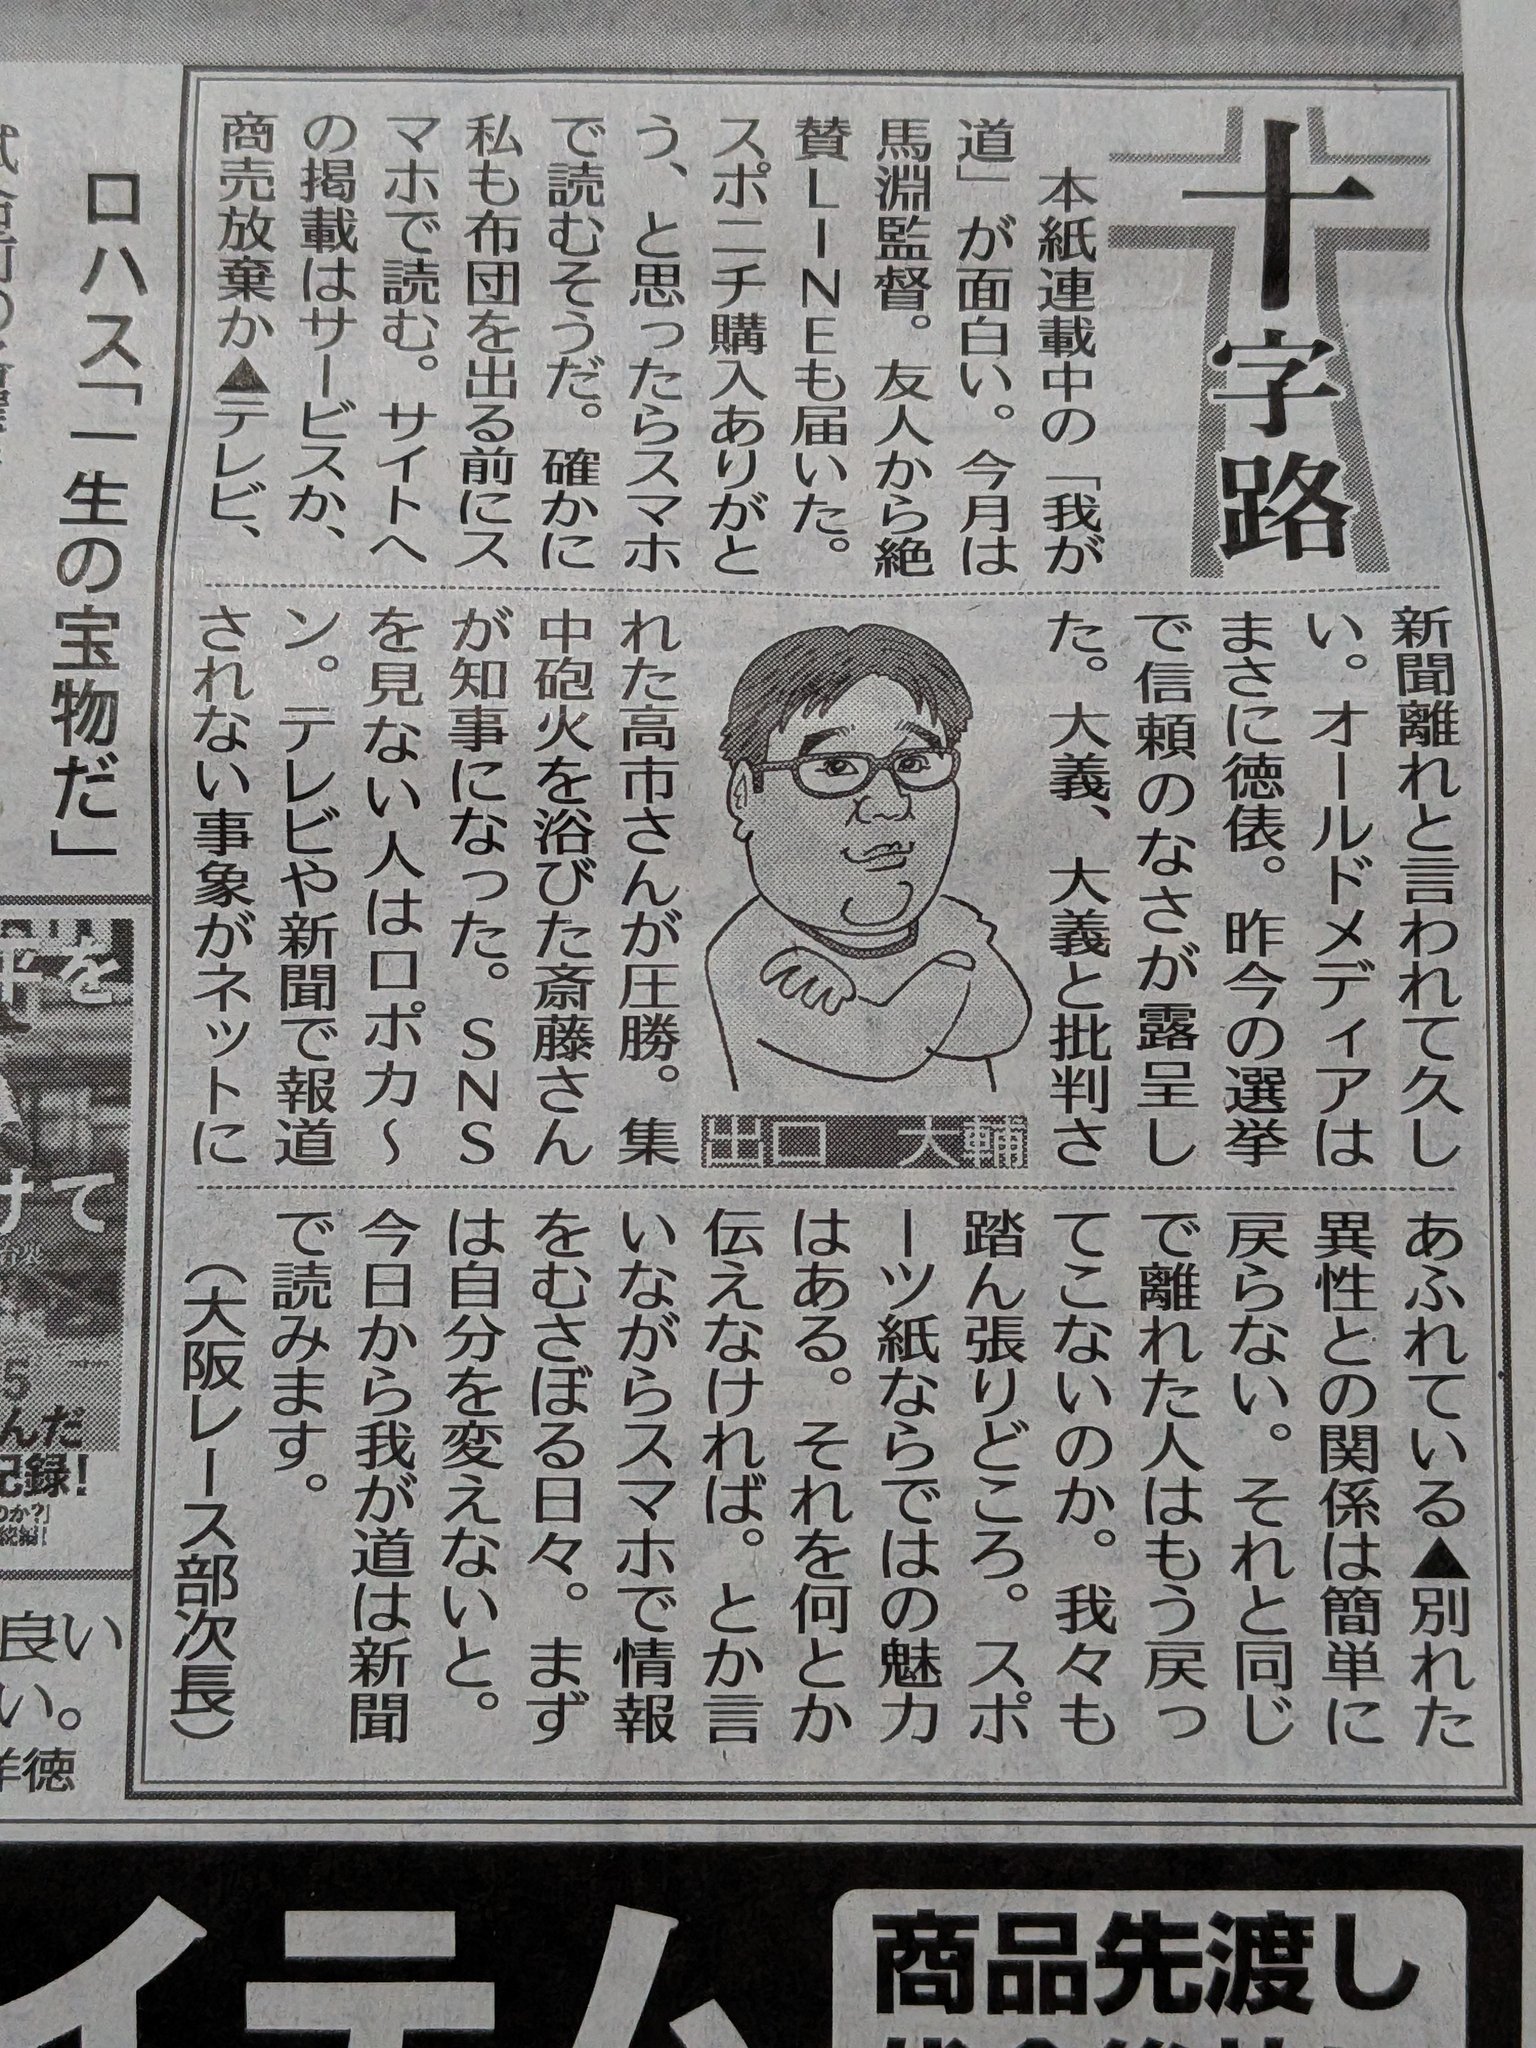 十字路
本紙連載中の「我が
道」が面白い。今月は
馬淵監督。友人から絶
賛LINEも届いた。
スポニチ購入ありがと
う、と思ったらスマホ
で読むそうだ。確かに
私も布団を出る前にス
マホで読む。サイトへ
の掲載はサービスか、
商売放棄か▲テレビ、
新聞離れと言われて久し
い。オールドメディアは
まさに徳俵。昨今の選挙
で信頼のなさが露呈し
た。大義、大義と批判さ
れた高市さんが圧勝。集
中砲火を浴びた斎藤さん
が知事になった。SNS
を見ない人はロポカ〜
ン。テレビや新聞で報道
されない事象がネットに
出口 大輔
あふれている▲別れた
異性との関係は簡単に
戻らない。それと同じ
で離れた人はもう戻っ
てこないのか。我々も
踏ん張りどころ。スポ
ーツ紙ならではの魅力
はある。それを何とか
伝えなければ。とか言
いながらスマホで情報
をむさぼる日々。まず
は自分を変えないと。
今日から我が道は新聞
で読みます。
（大阪レース部次長）
ロハス「一生の宝物だ」
を
けて
5
んだ
記録!
のか?」
続編!
良い
い。
徳
イテム
商品先渡し